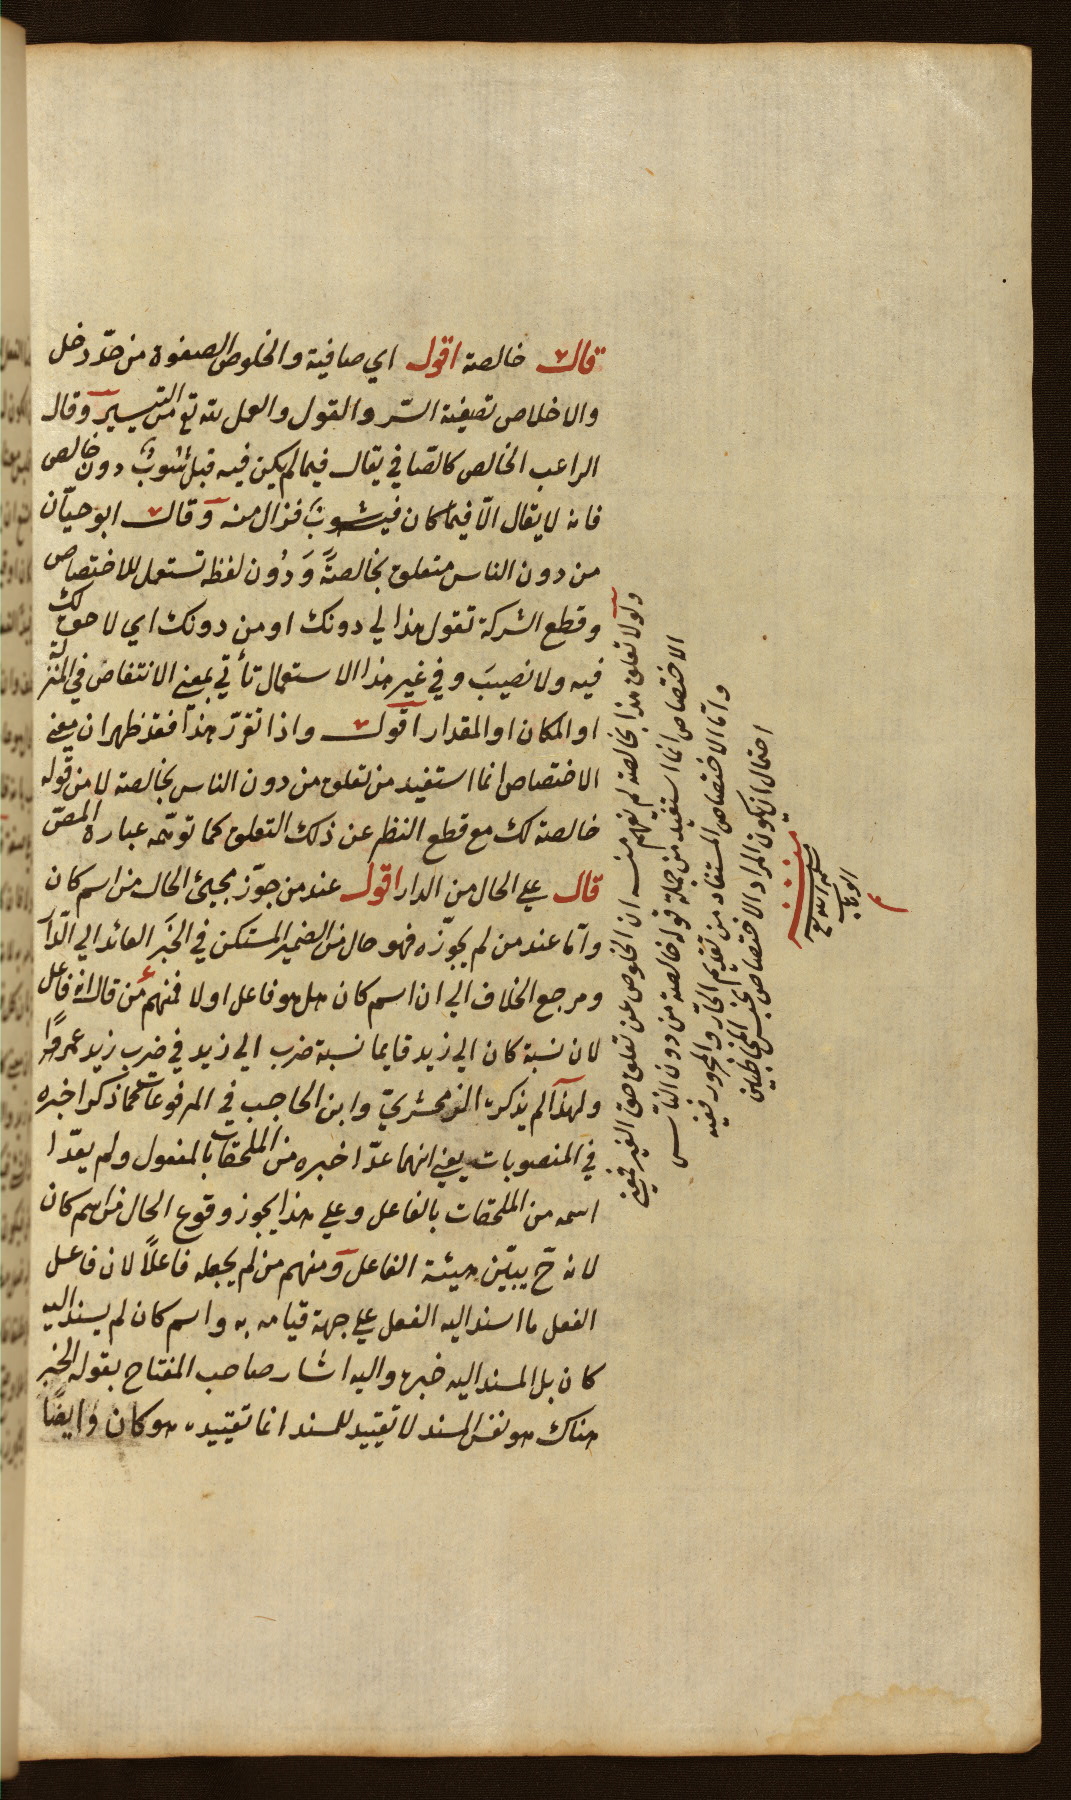 قال خالصة اقول اي صافية والخلوص الصفوة من حدّ دخل
والاخلاص تصفية السّر والقول والعمل لله تع من التيسير وقال
الراغب الخالص كالصّافي يقال فيما لم يكن فيه قبل شوب دون خالص
فانه لا يقال الّا فيما كان فيه شوب فزال منه وقال ابو حيّان
من دون الناس متعلق بخالصةً وَدُون لفظه تستعمل للاختصاص
وقطع الشركة تقول هذا لي دونك او من دونك اي لا حق لك
فيه ولا نصيبَ وفي غير هذا الاستعمال تأتي بمعنى الانتقاص في المنزلة
او المكان او المقدار اقول واذا تقرّر هذا فقد ظهر ان معنى
الاختصاص انما استفيد من تعلق من دون الناس بخالصة لا من قوله
خالصة لك مع قطع النظر عن ذلك التعلق كما توهّمه عبارة المصّ
قال علي الحال من الدار اقول عند من جوّز مجيئ الحال من اسم كان
وامّا عند من لم يجوّزه فهو حال من الضمير المستكن في الخبَر العائد الي الدّار
ومرجع الخلاف الي ان اسم كان هل هو فاعل اولا فمنهم من قال انه فاعل
لان نسبة كان الي زيد قايما نسبة ضرب الي زيد في ضرب زيد عمروًا
ولهذا لم يذكره الزمخشريّ وابن الحاجب في المرفوعات كما ذكرا خبره
في المنصوبات يعني انهما عدّا خبره من الملحقات بالمفعول ولم يعدّا
اسمه من الملحقات بالفاعل وعلي هذا يجوز وقوع الحال من اسم كان
لانه ح يبيّن هيئة الفاعل ومنهم من لم يجعله فاعلًا لان فاعل
الفعل ما اسند اليه الفعل علي جهة قيامه به واسم كان لم يسند اليه
كان بل المسند اليه خبرها واليه اشار صاحب المفتاح بقوله الخبر
هناك هو نفس المسند لا تقييد للمسند انما تقييده هو كان وايضًا
ولولا تعلق هذا بخالصة لم يفهم منه ان الخلوص عن تعلق حق الغير فمعنى
الاختصاص انما استفيد من جملة قوله خالصة من دون الناس
وامّا الاختصاص المستفاد من تقديم الجارّ والمجرور ففيه
احتمال ان يكون المراد الاختصاص بجنس المخاطبين